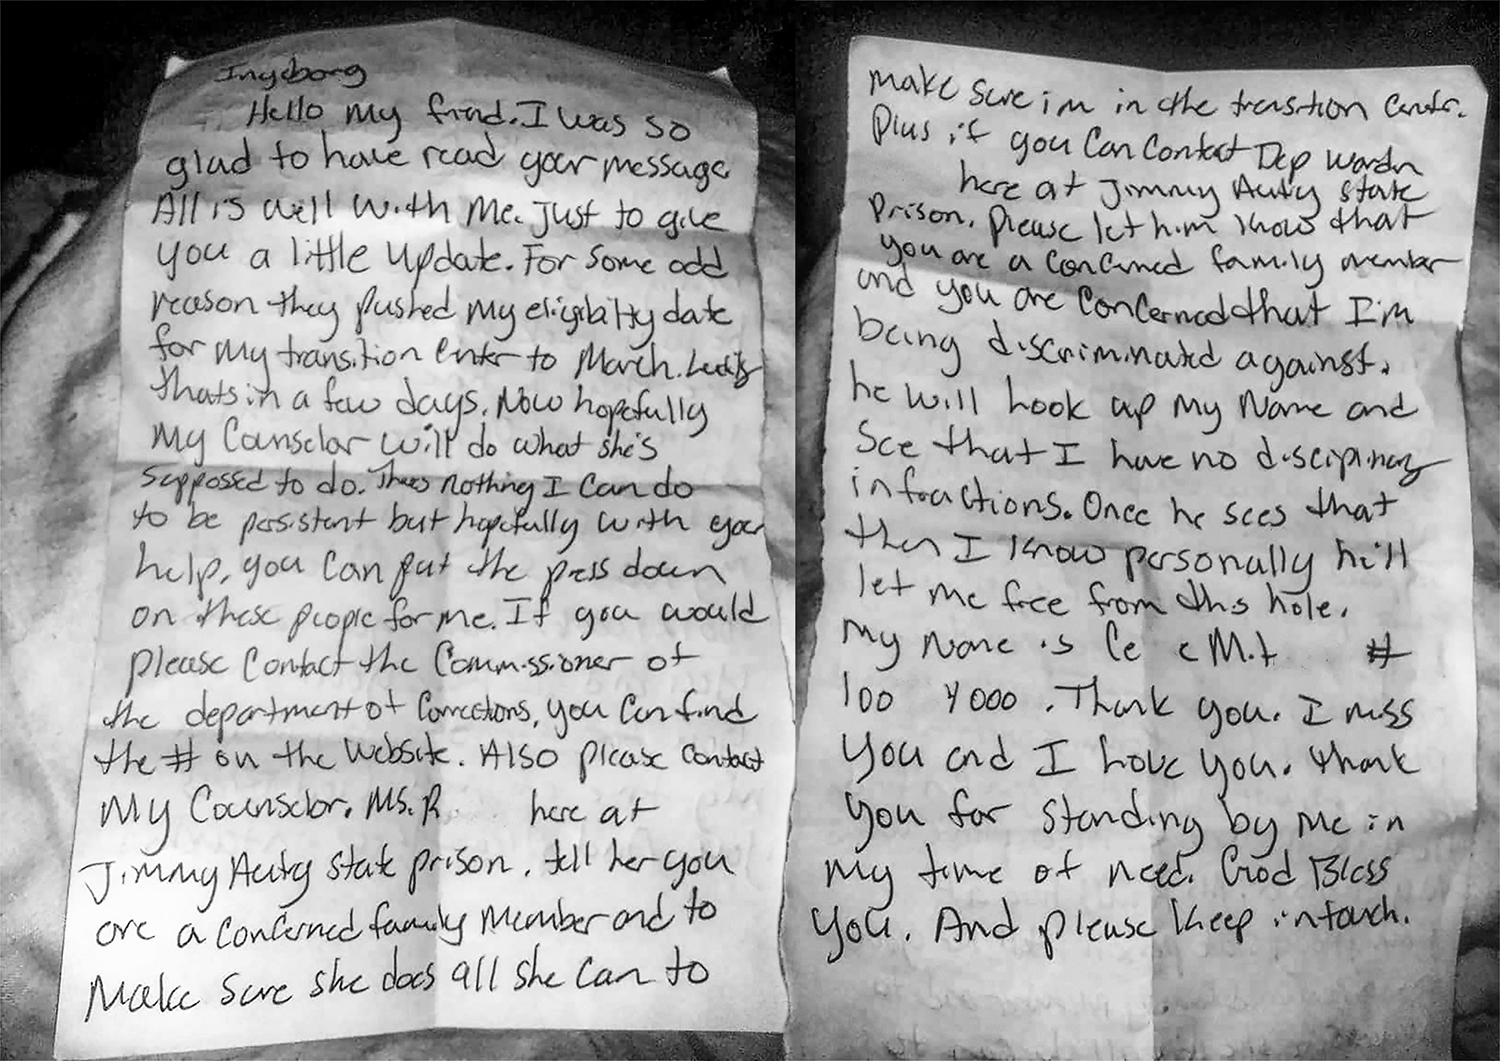 Ingeborg
Hello my frind. I was so
glad to have read your message
All is well with me. Just to give
you a little update. For some odd
reason they pushed my eligibilty date
for my transition center to March. Luckily
thats in a few days. Now hopefully
my Counselor will do what she's
supposed to do. Theres nothing I can do
to be persistent but hopefully with your
help, you can put the press down
on these people for me. If you would
please contact the Commissioner of
the department of Corrections, you can find
the # on the website. Also please contact
my Counselor. Ms. R here at
Jimmy Auty state prison. tell her you
are a concerned family member and to
make sure she does all she can to
make sure im in the transtion Centr.
Plus if you Can Contact Dep Wardn
here at Jimmy Auty state
prison. please let him know that
you are a concerned family member
and you are concerned that I'm
being discriminated against.
he will look up my name and
see that I have no discipinary
infractions. Once he sees that
then I know personally he'll
let me free from this hole.
My name is Ce c M.t #
100 4000. Thank you. I miss
you and I love you. thank
you for standing by me in
my time of need. God Bless
you. And please keep in touch.